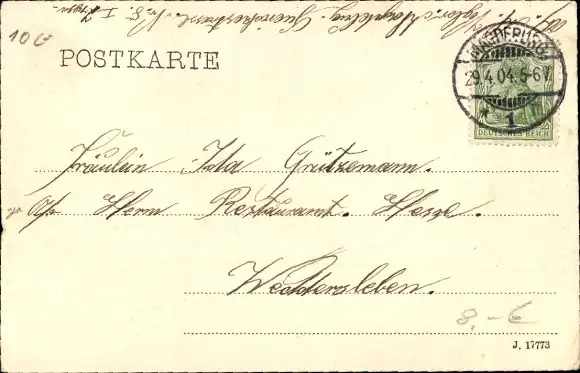 10 €
POSTKARTE
MAGDEBURG
29.4.04. 5-6 V.
* 1
DEUTSCHES REICH
Fräulein Ida Grützemann.
Herrn Restaurant. Hesse.
Weddersleben.
8,-€
J. 17773